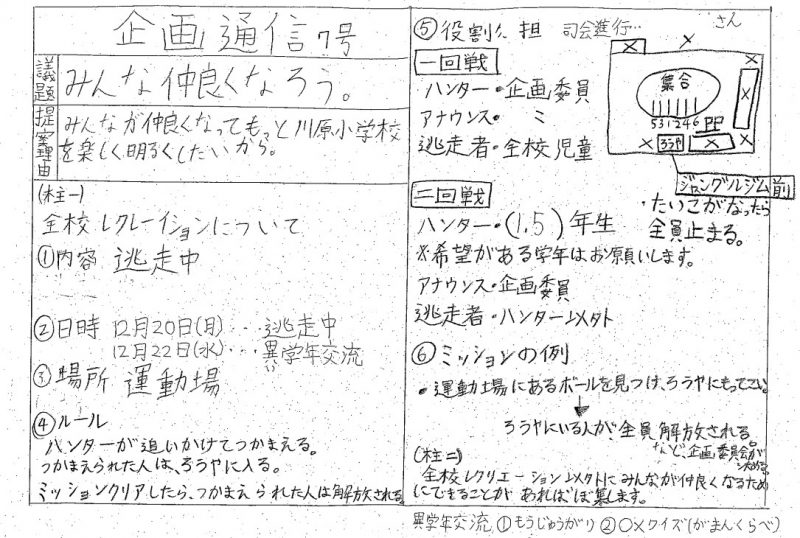 企画通信7号
議題
みんな仲良くなろう。
提案理由
みんなが仲良くなってもっと川原小学校
を楽しく明るくしたいから。
(柱一)
全校レクレーイションについて
①内容 逃走中
②日時 12月20日(月)・・・逃走中
12月22日(水)・・・異学年交流
③場所 運動場
④ルール
ハンターが追いかけてつかまえる。
つかまえられた人は、ろうやに入る。
ミッションクリアしたら、つかまえられた人は解放される。
⑤役割分担 司会進行・・ さん
一回戦
ハンター・企画委員
アナウンス・ 〃
逃走者・全校児童
集合
531246 PP
ろうや
ジャングルジム前
・たいこがなったら
全員止まる。
二回戦
ハンター・(1.5)年生
※希望がある学年はお願いします。
アナウンス・企画委員
逃走者・ハンター以外
⑥ミッションの例
・運動場にあるボールを見つけ、ろうやにもってこい。
ろうやにいる人が、全員解放される
など、企画委員会が
決める。
(柱二)
全校レクリエーション以外にみんなが仲良くなるため
にできることがあればぼ集します。
異学年交流 ①もうじゅうがり ②○×クイズ(がまんくらべ)